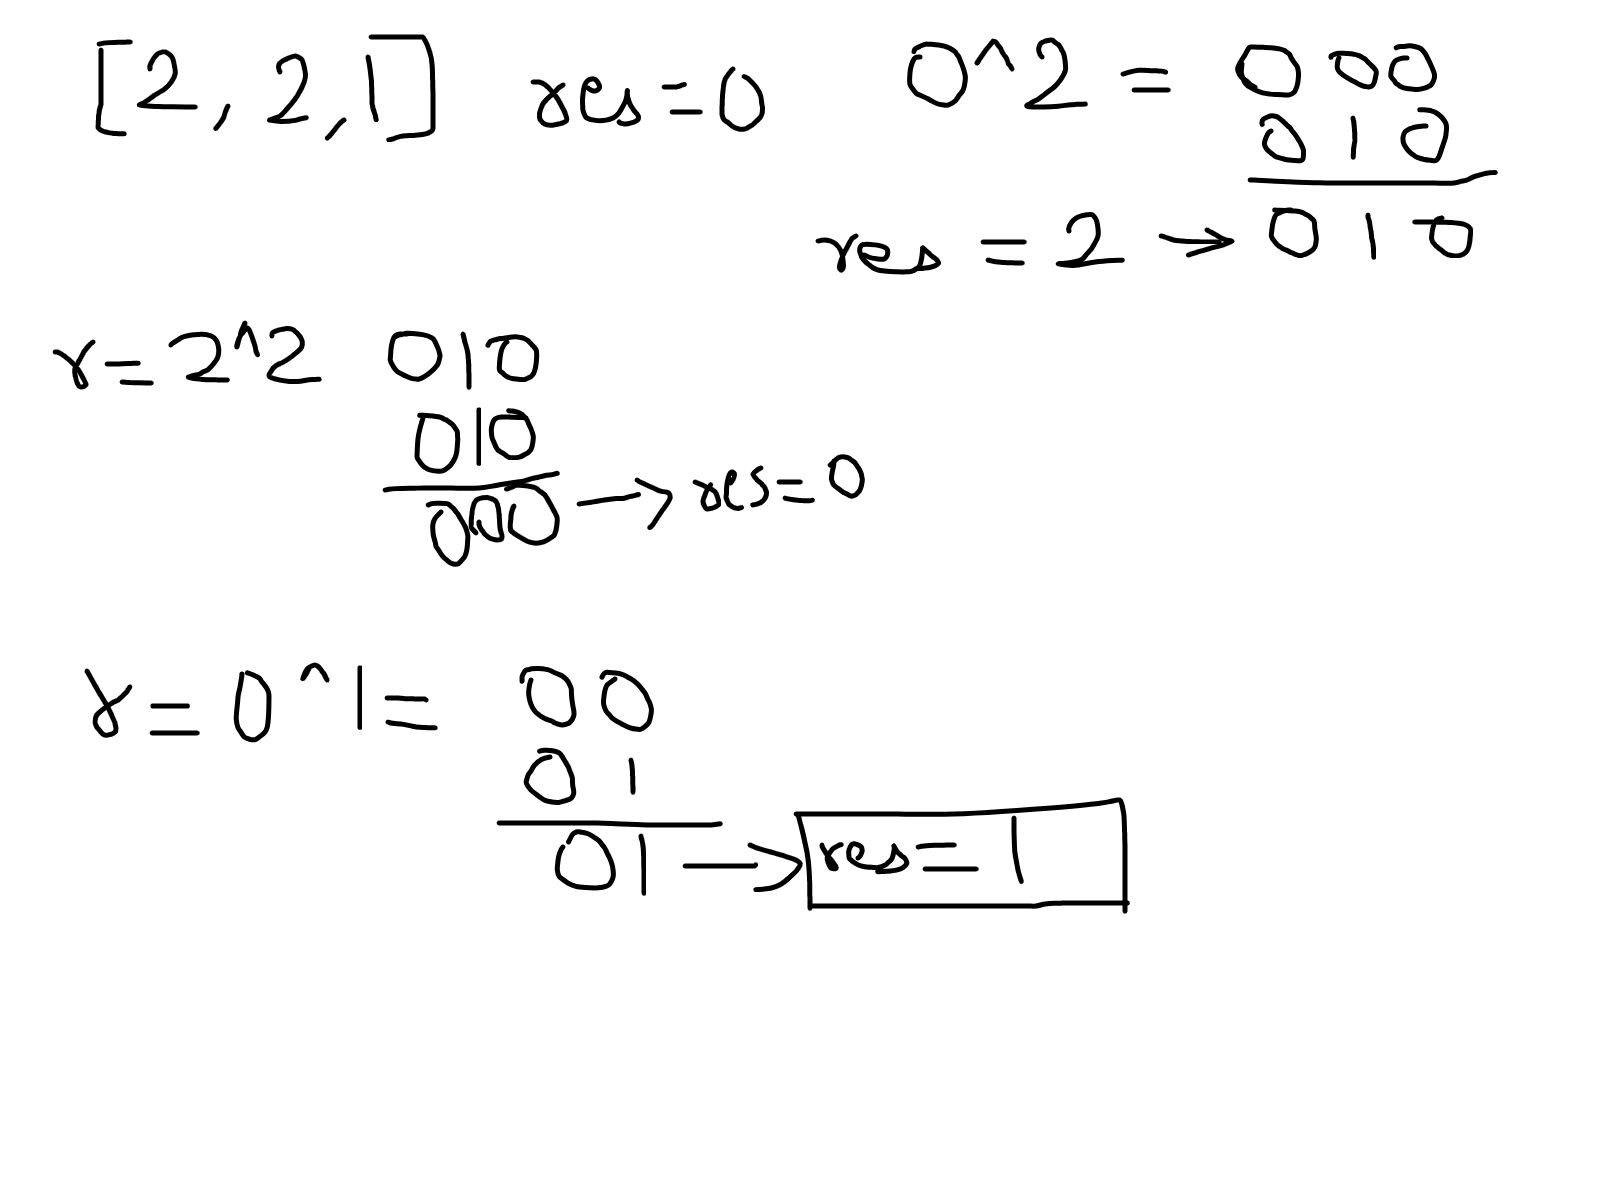 [2, 2, 1] res = 0
0 ^ 2 = 000
010
010
res = 2 →
r = 2 ^ 2 010
010
000 → res = 0
r = 0 ^ 1 = 00
01
01 → res = 1